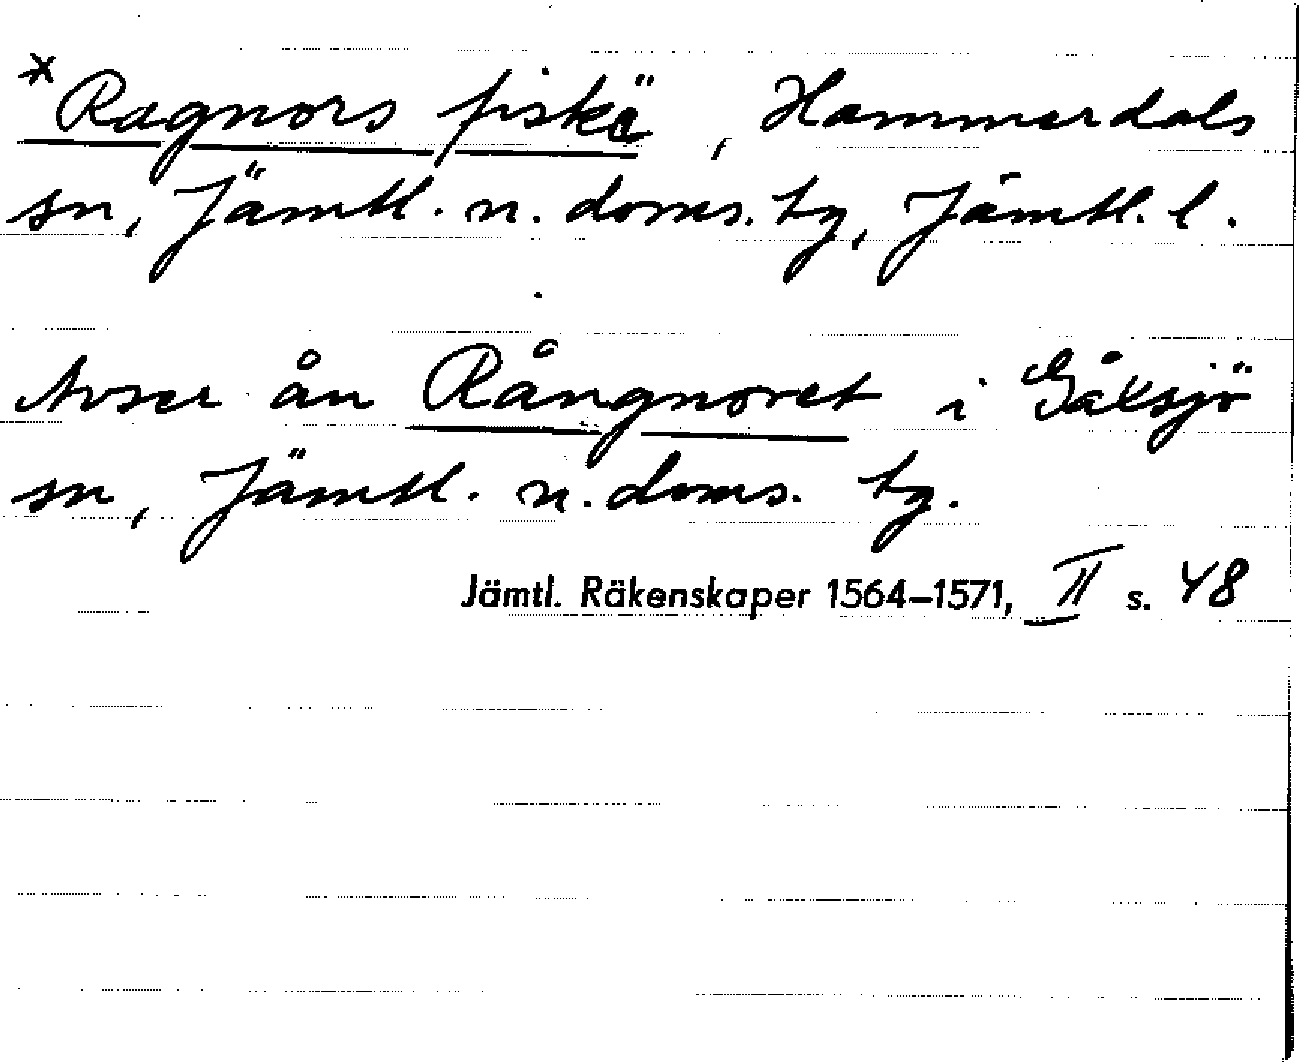 * Ragnors fiskä, Hammerdals
sn, Jämtl. n. doms. tg, Jämtl. l.
Avser ån Rångnoret i Gåxsjö
sn, Jämtl. n. doms. tg.
Jämtl. Räkenskaper 1564–1571, II s. 48